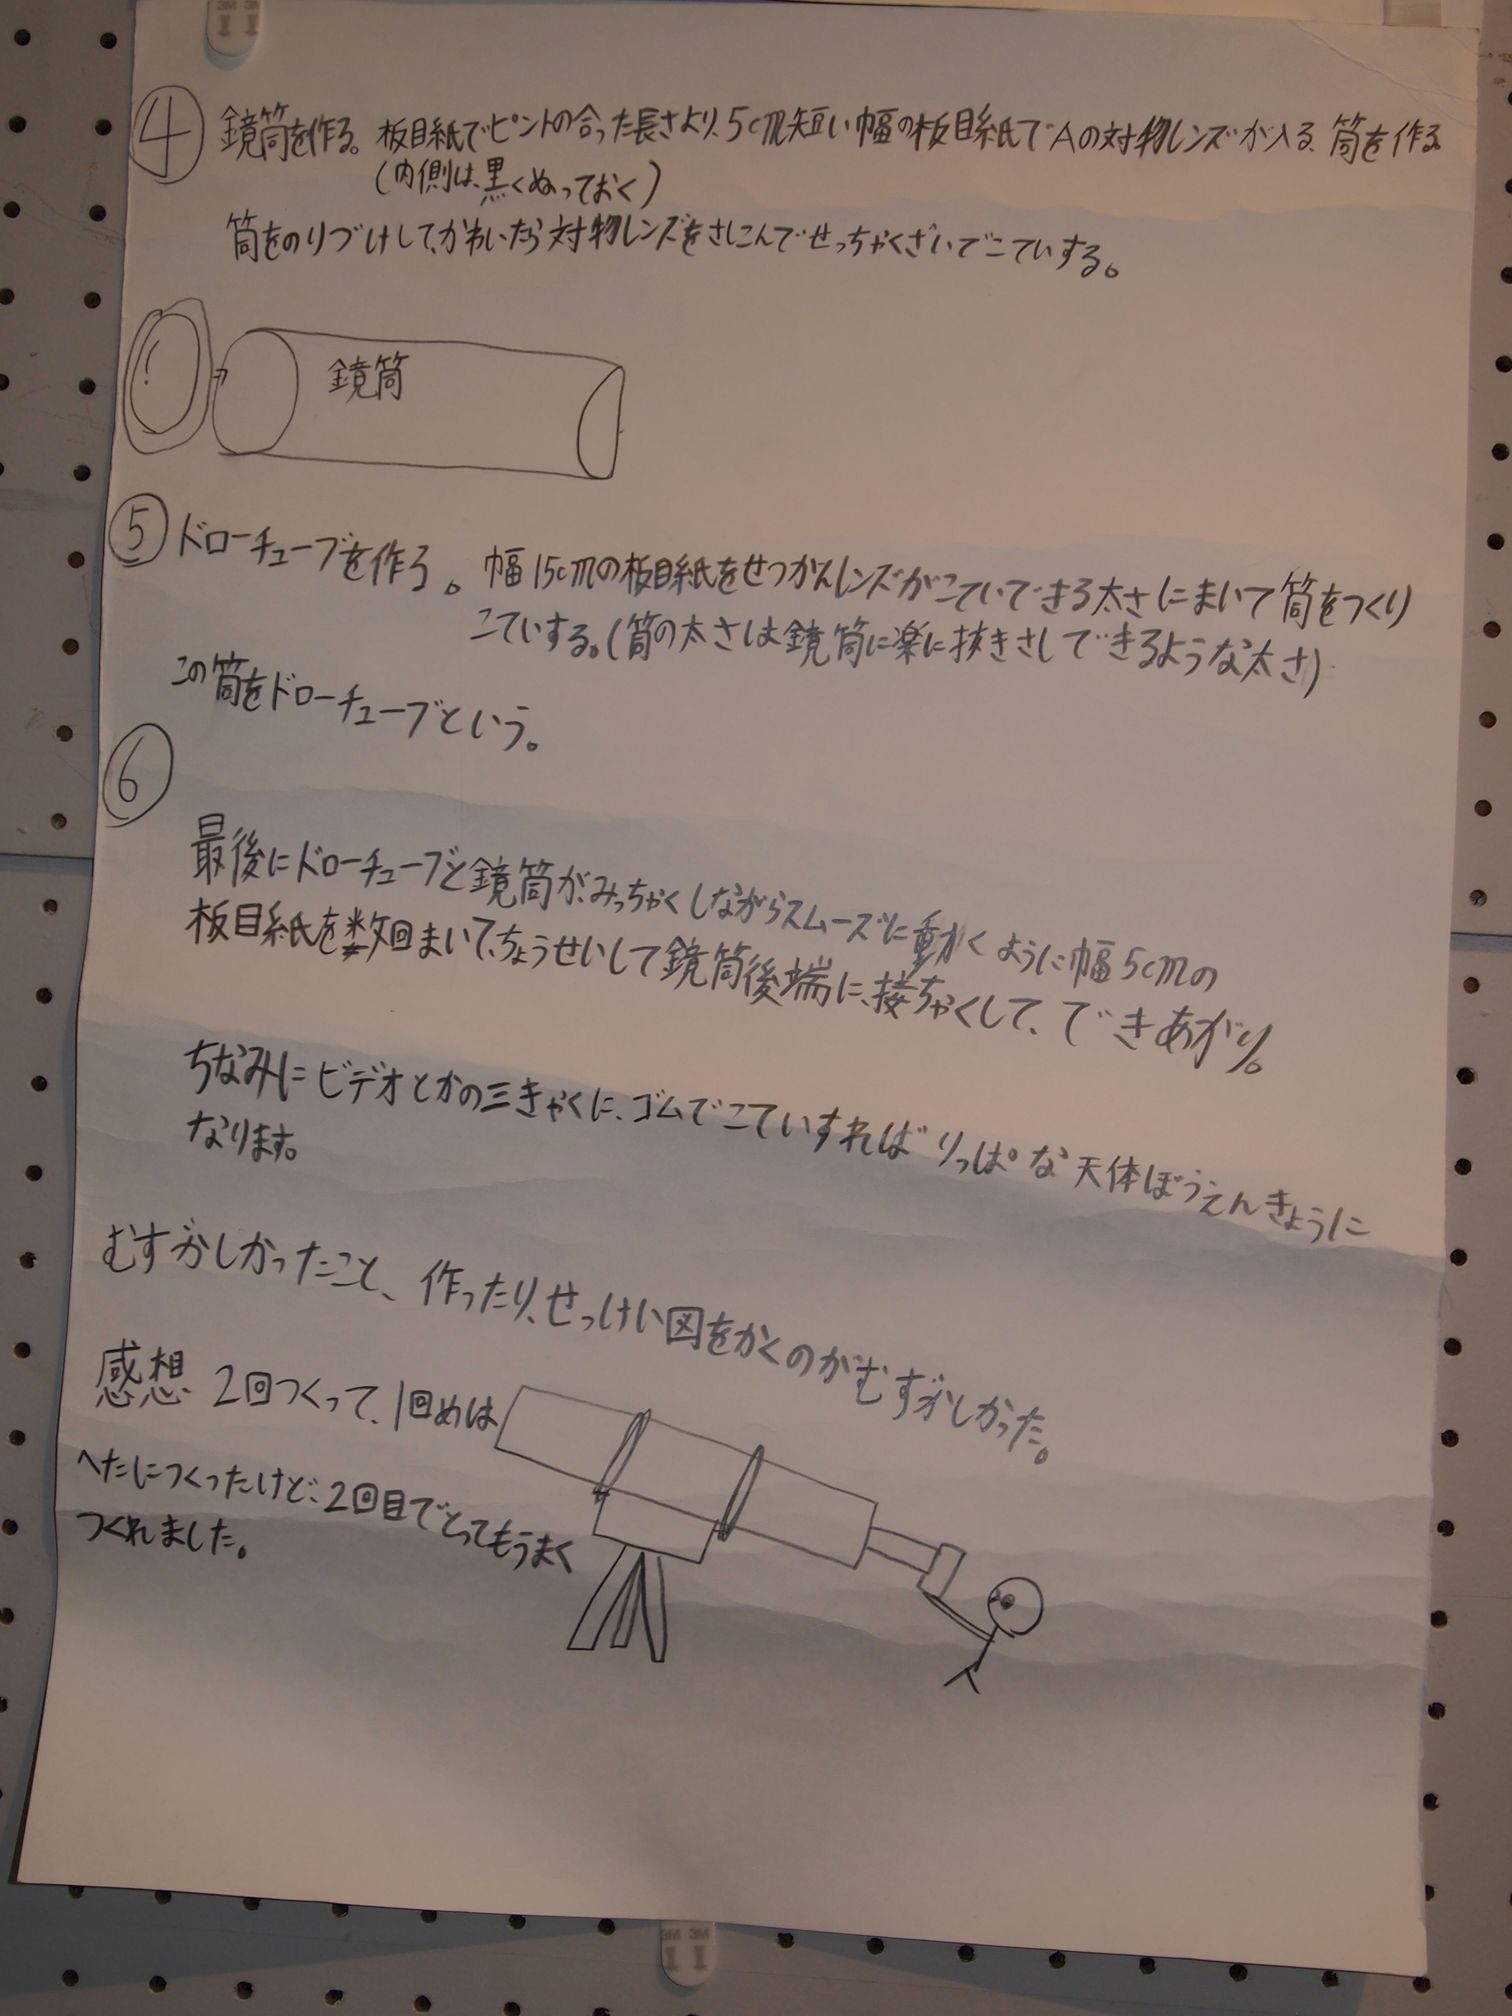 ④ 鏡筒を作る。板目紙でピントの合った長さより、5cm短い幅の板目紙でAの対物レンズが入る、筒を作る
(内側は、黒くぬっておく)
筒をのりづけして、かわいたら対物レンズをさしこんでせっちゃくざいでこていする。
鏡筒
⑤ ドローチューブを作る。幅15cmの板目紙をせつがんレンズがこていできる太さにまいて筒をつくり
こていする。(筒の太さは鏡筒に楽に抜きさしできるような太さ)
この筒をドローチューブという。
⑥
最後にドローチューブと鏡筒が、みっちゃくしながらスムーズに動かくように幅5cmの
板目紙を数回まいて、ちょうせいして鏡筒後端に、接ちゃくして、できあがり。
ちなみにビデオとかの三きゃくに、ゴムでこていすればりっぱな天体ぼうえんきょうに
なります。
むずかしかったこと、作ったり、せっけい図をかくのがむずかしかった。
感想 2回つくって、1回めは
へたにつくったけど、2回目でとってもうまく
つくれました。
3M 3M
3M 3M